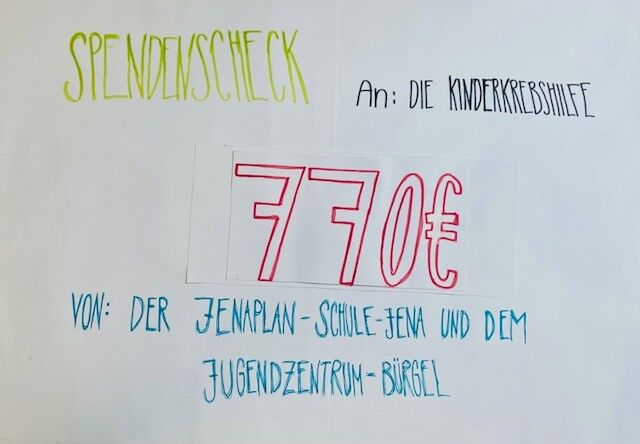 SPENDENSCHECK
An: DIE KINDERKREBSHILFE
770€
VON: DER JENAPLAN-SCHULE-JENA UND DEM
JUGENDZENTRUM-BÜRGEL